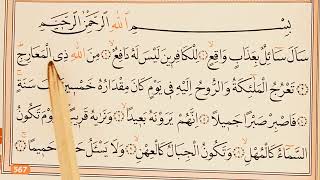 بِسْمِ اللهِ الرَّحْمٰنِ الرَّحِيْمِ
سَاَلَ سَائِلٌ بِعَذَابٍ وَاقِعٍ لِلْكَافِرِينَ لَيْسَ لَهُ دَافِعٌ مِنَ اللهِ ذِي الْمَعَارِجِ
تَعْرُجُ الْمَلٰئِكَةُ وَالرُّوحُ اِلَيْهِ فِي يَوْمٍ كَانَ مِقْدَارُهُ خَمْسِينَ اَلْفَ سَنَةٍ
فَاصْبِرْ صَبْرًا جَمِيلًا اِنَّهُمْ يَرَوْنَهُ بَعِيدًا وَنَرٰيهُ قَرِيبًا يَوْمَ تَكُونُ
السَّمَاءُ كَالْمُهْلِ وَتَكُونُ الْجِبَالُ كَالْعِهْنِ وَلَا يَسْـَٔلُ حَمِيمٌ حَمِيمًا
567